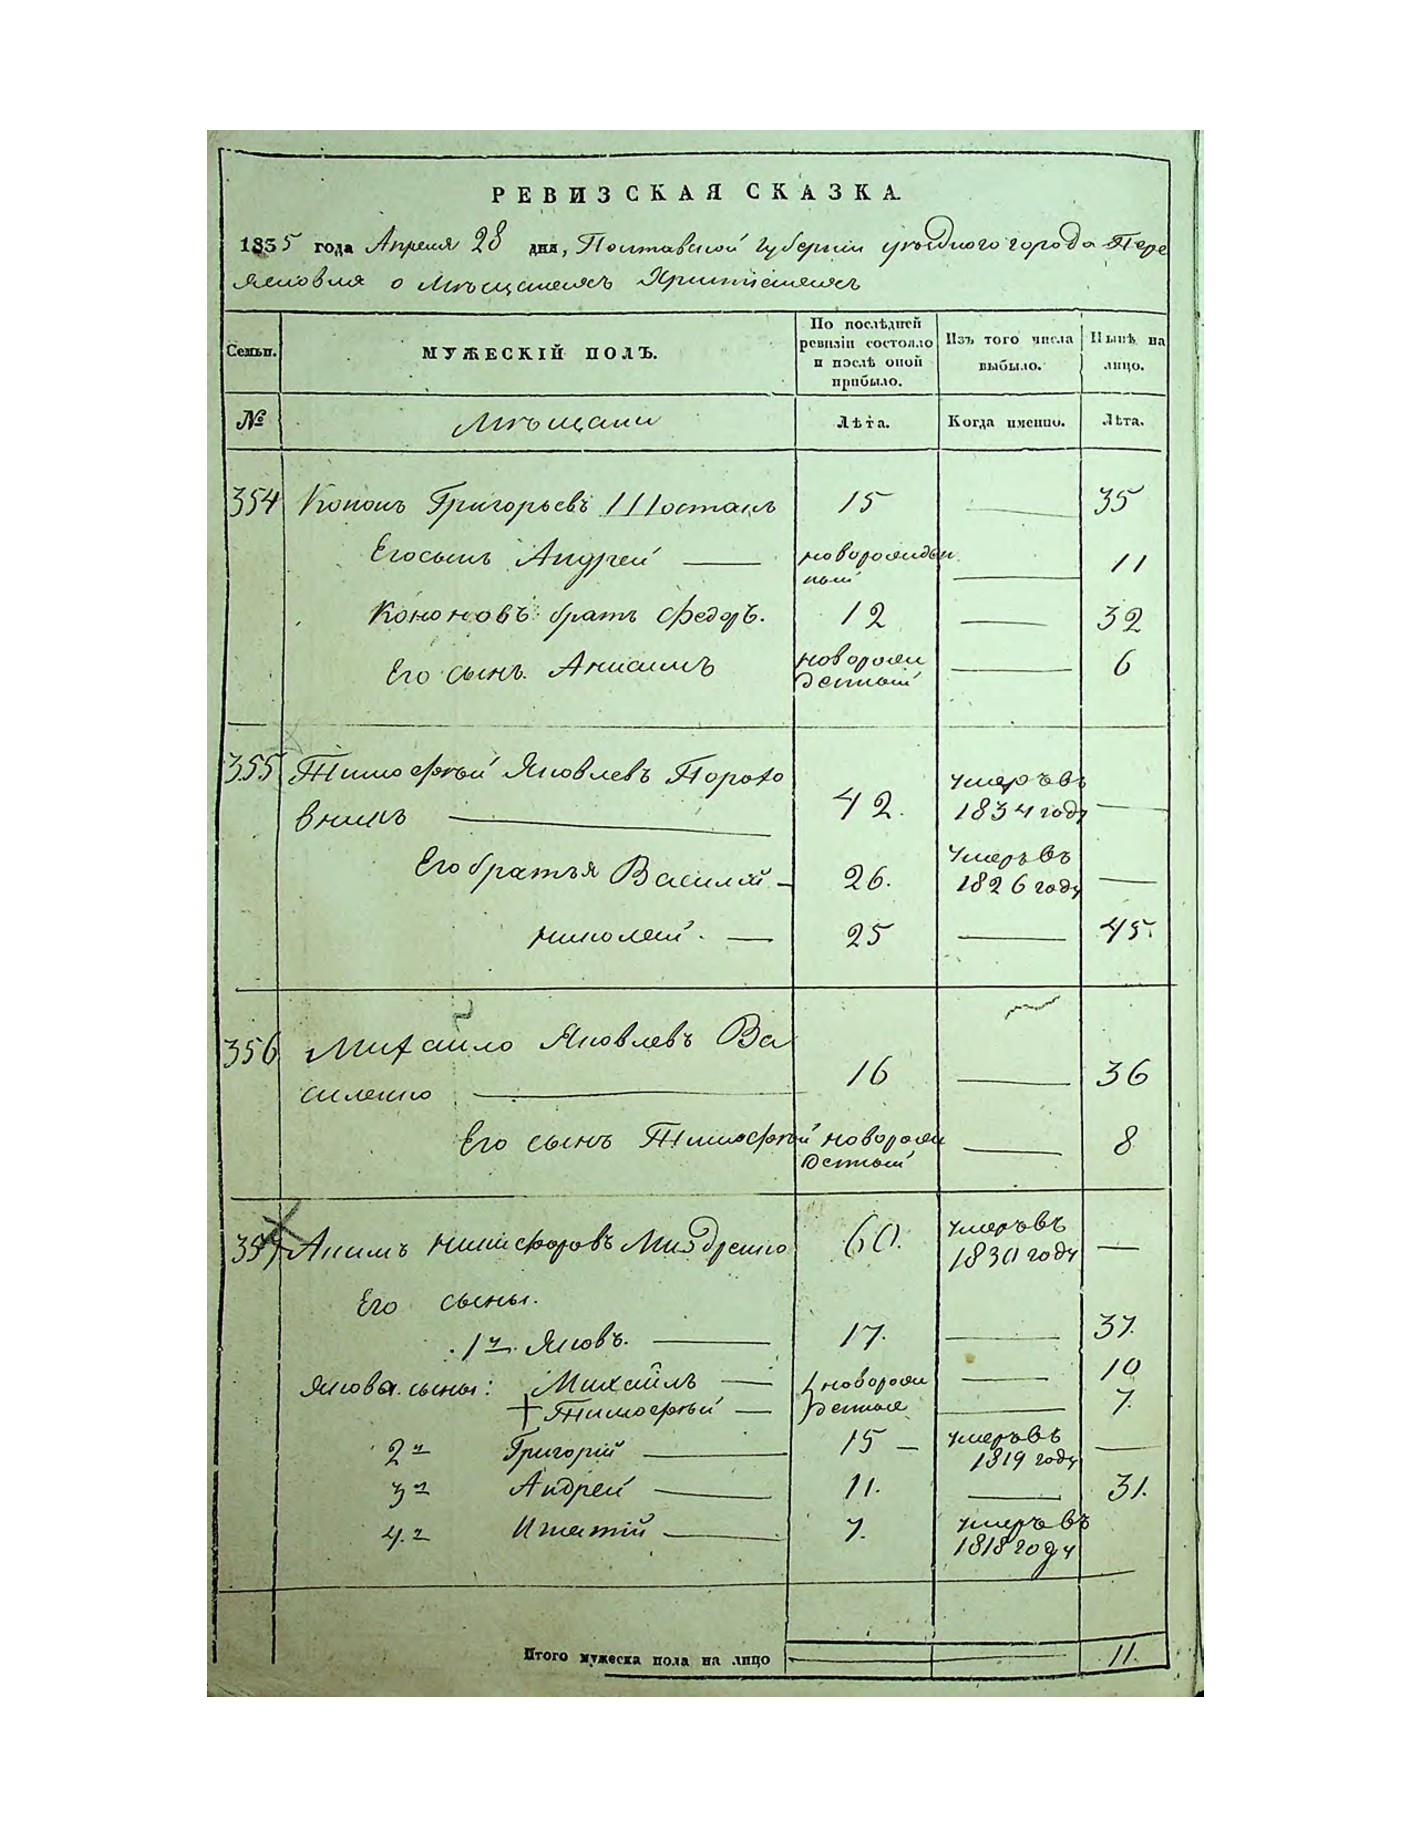 РЕВИЗСКАЯ СКАЗКА
1835 года Апреля 28 дня, Полтавской губернии уѣздного города Пере
яславля о мѣщанехъ Христіянехъ
Семьи. МУЖЕСКІЙ ПОЛЪ. По послѣдней ревизіи состояло и послѣ оной прибыло. Изъ того числа выбыло. Нынѣ на лицо.
№ Мѣщани Лѣта. Когда именно. Лѣта.
354 Кононъ Григорьевъ Шостакъ 15 — 35
Его сынъ Андрей — новорожден ный — 11
Кононовъ братъ Федоръ. 12 — 32
Его сынъ Анисимъ новорож денный — 6
355 Тимофѣй Яковлевъ Порохо
вникъ — 42. умеръ въ 1834 году —
Его братья Василій — 26. умеръ въ 1826 году —
Николай — 25 — 45.
356 Михайло Яковлевъ Ва
силенко — 16 — 36
Его сынъ Тимофѣй новорож денный — 8
357 Акимъ Никифоровъ Миздренко 60. умеръ въ 1830 году —
Его сыны.
1й Яковъ. — 17. — 37.
Якова сыны: Михаилъ — новорож — 10
Тимофѣй — денные — 7.
2й Григорій — 15 — умеръ въ 1819 году —
3й Андрей — 11. — 31.
4й Игнатій — 7. умеръ въ 1818 году
Итого мужеска пола на лицо — 11.